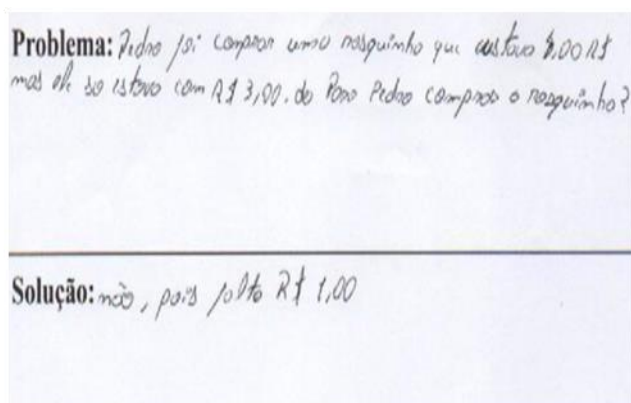 Problema: Pedro foi comprar uma rosquinha que custava 4,00 R$
mas ele so estava com R$ 3,00. da Para Pedro comprar a rosquinha?
Solução: não, pois falta R$ 1,00